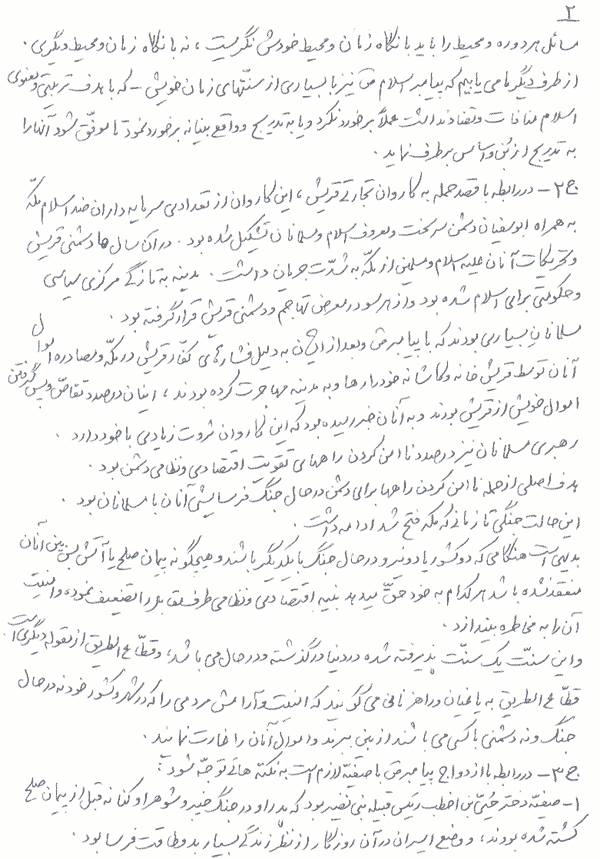 ۲
مسائل هر دوره و محیط را باید با نگاه زمان و محیط خودش نگریست، نه با نگاه زمان و محیط دیگری.
از طرف دیگر ما می‌یابیم که پیامبر اسلام ص نیز با بسیاری از سنّتهای زمان خویش - که با هدف تربیتی و معنوی
اسلام منافات و تضاد نداشت عملاً برخورد نکرد و یا به تدریج و واقع بینانه برخورد نمود تا موفّق شود آنها را
به تدریج از بُن و اساس برطرف نماید.
ج۲- در رابطه با قصد حمله به کاروان تجارتی قریش، این کاروان از تعدادی سرمایه داران ضد اسلام مکّه
به همراه ابوسفیان دشمن سرسخت و معروف اسلام و مسلمانان تشکیل شده بود. در آن سال ها دشمنی قریش
و تحریکات آنان علیه اسلام و مسلمین از مکّه به شدّت جریان داشت. مدینه به تازگی مرکزی سیاسی
و حکومتی برای اسلام شده بود و از هر سو در معرض تهاجم و دشمنی قریش قرار گرفته بود.
مسلمانان بسیاری بودند که با پیامبر ص و بعد از ایشان به دلیل فشارهای کفّار قریش در مکّه و مصادره اموال
آنان توسط قریش خانه و کاشانه خود را رها و به مدینه مهاجرت کرده بودند، اینان درصدد تقاصّ و پس گرفتن
اموال خویش از قریش بودند و به آنان خبر رسیده بود که این کاروان ثروت زیادی با خود دارد.
رهبری مسلمانان نیز درصدد ناامن کردن راههای تقویت اقتصادی و نظامی دشمن بود.
هدف اصلی از حمله ناامن کردن راهها برای دشمن در حال جنگ فرسایشی آنان با مسلمانان بود.
این حالت جنگی تا زمانی که مکه فتح شد ادامه داشت.
بدیهی است هنگامی که دو کشور یا دو نیرو در حال جنگ با یکدیگر باشند و هیچگونه پیمان صلح یا آتش بس بین آنان
منعقد نشده باشد هر کدام به خود حقّ میدهد بنیه اقتصادی و نظامی طرف مقابل را تضعیف نموده و امنیت
آن را به مخاطره بیندازد.
و این سنّت یک سنّت پذیرفته شده در دنیا در گذشته و در حال می باشد، و قطّاع الطریق از مقوله دیگری است.
قطّاع الطریق به یاغیان و راهزنانی می گویند که امنیت و آرامش مردمی را که در شهر و کشور خود نه در حال
جنگ و نه دشمنی با کسی می باشند از بین ببرند و اموال آنان را غارت نمایند.
ج۳- در رابطه با ازدواج پیامبر ص با صفیّه لازم است به نکته هائی توجّه شود:
۱- صفیّه دختر حُیَیّ بن اخطب رئیس قبیله بنی نضیر بود که پدر او در جنگ خیبر و شوهر او کنانه قبل از پیمان صلح
کشته شده بودند، و وضع اسیران در آن روزگار از نظر زندگی بسیار بد و طاقت فرسا بود.